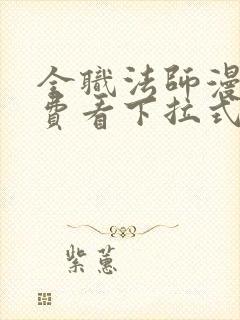 全職法師漫
費看下拉式
紫蕙